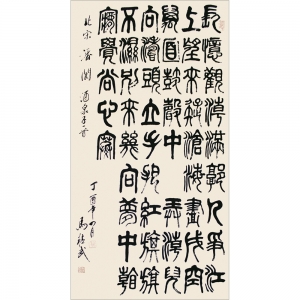 長憶觀潮滿郭人爭江
上望來疑滄海盡成空
萬面鼓聲中弄潮兒
向濤頭立手把紅旗旗
不濕別來幾向夢中看
夢覺尚心寒
北宋潘閬酒泉子
丁酉年四月
馬